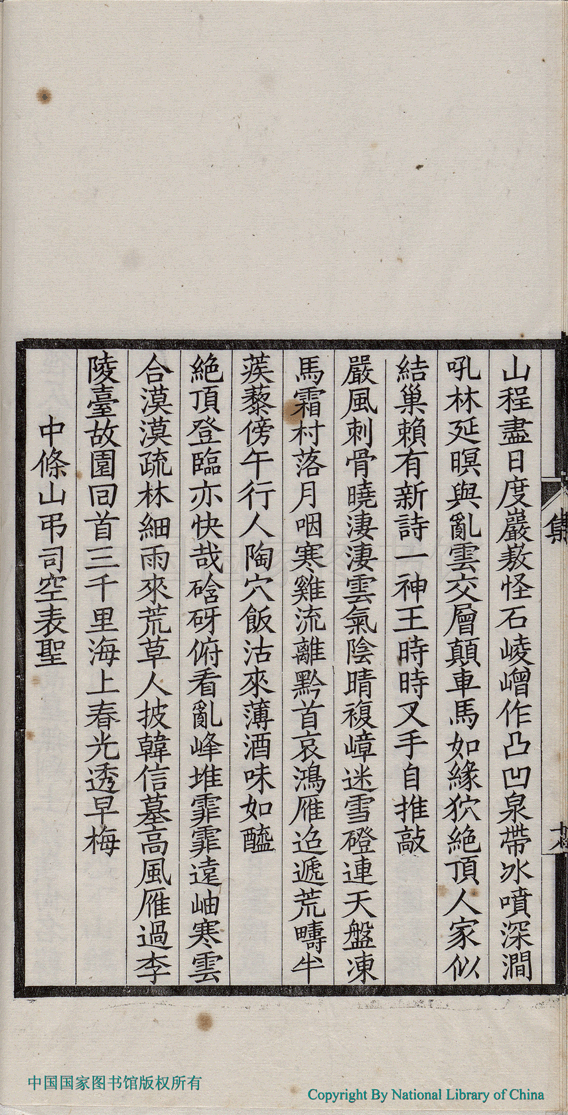 山程盡日度巖嶅怪石崚嶒作凸凹泉帶冰噴深澗
吼林延暝與亂雲交層顛車馬如緣穴絶頂人家似
結巢賴有新詩一神王時時叉手自推敲
嚴風刺骨曉淒淒雲氣陰晴複嶂迷雪磴連天盤凍
馬霜村落月咽寒雞流離黔首哀鴻雁迢遞荒疇半
蒺藜傍午行人陶穴飯沽來薄酒味如醯
絶頂登臨亦快哉硆砑俯看亂峰堆霏霏遠岫寒雲
合漠漠疏林細雨來荒草人披韓信墓高風雁過李
陵臺故園回首三千里海上春光透早梅
中條山弔司空表聖
集
中国国家图书馆版权所有
Copyright By National Library of China